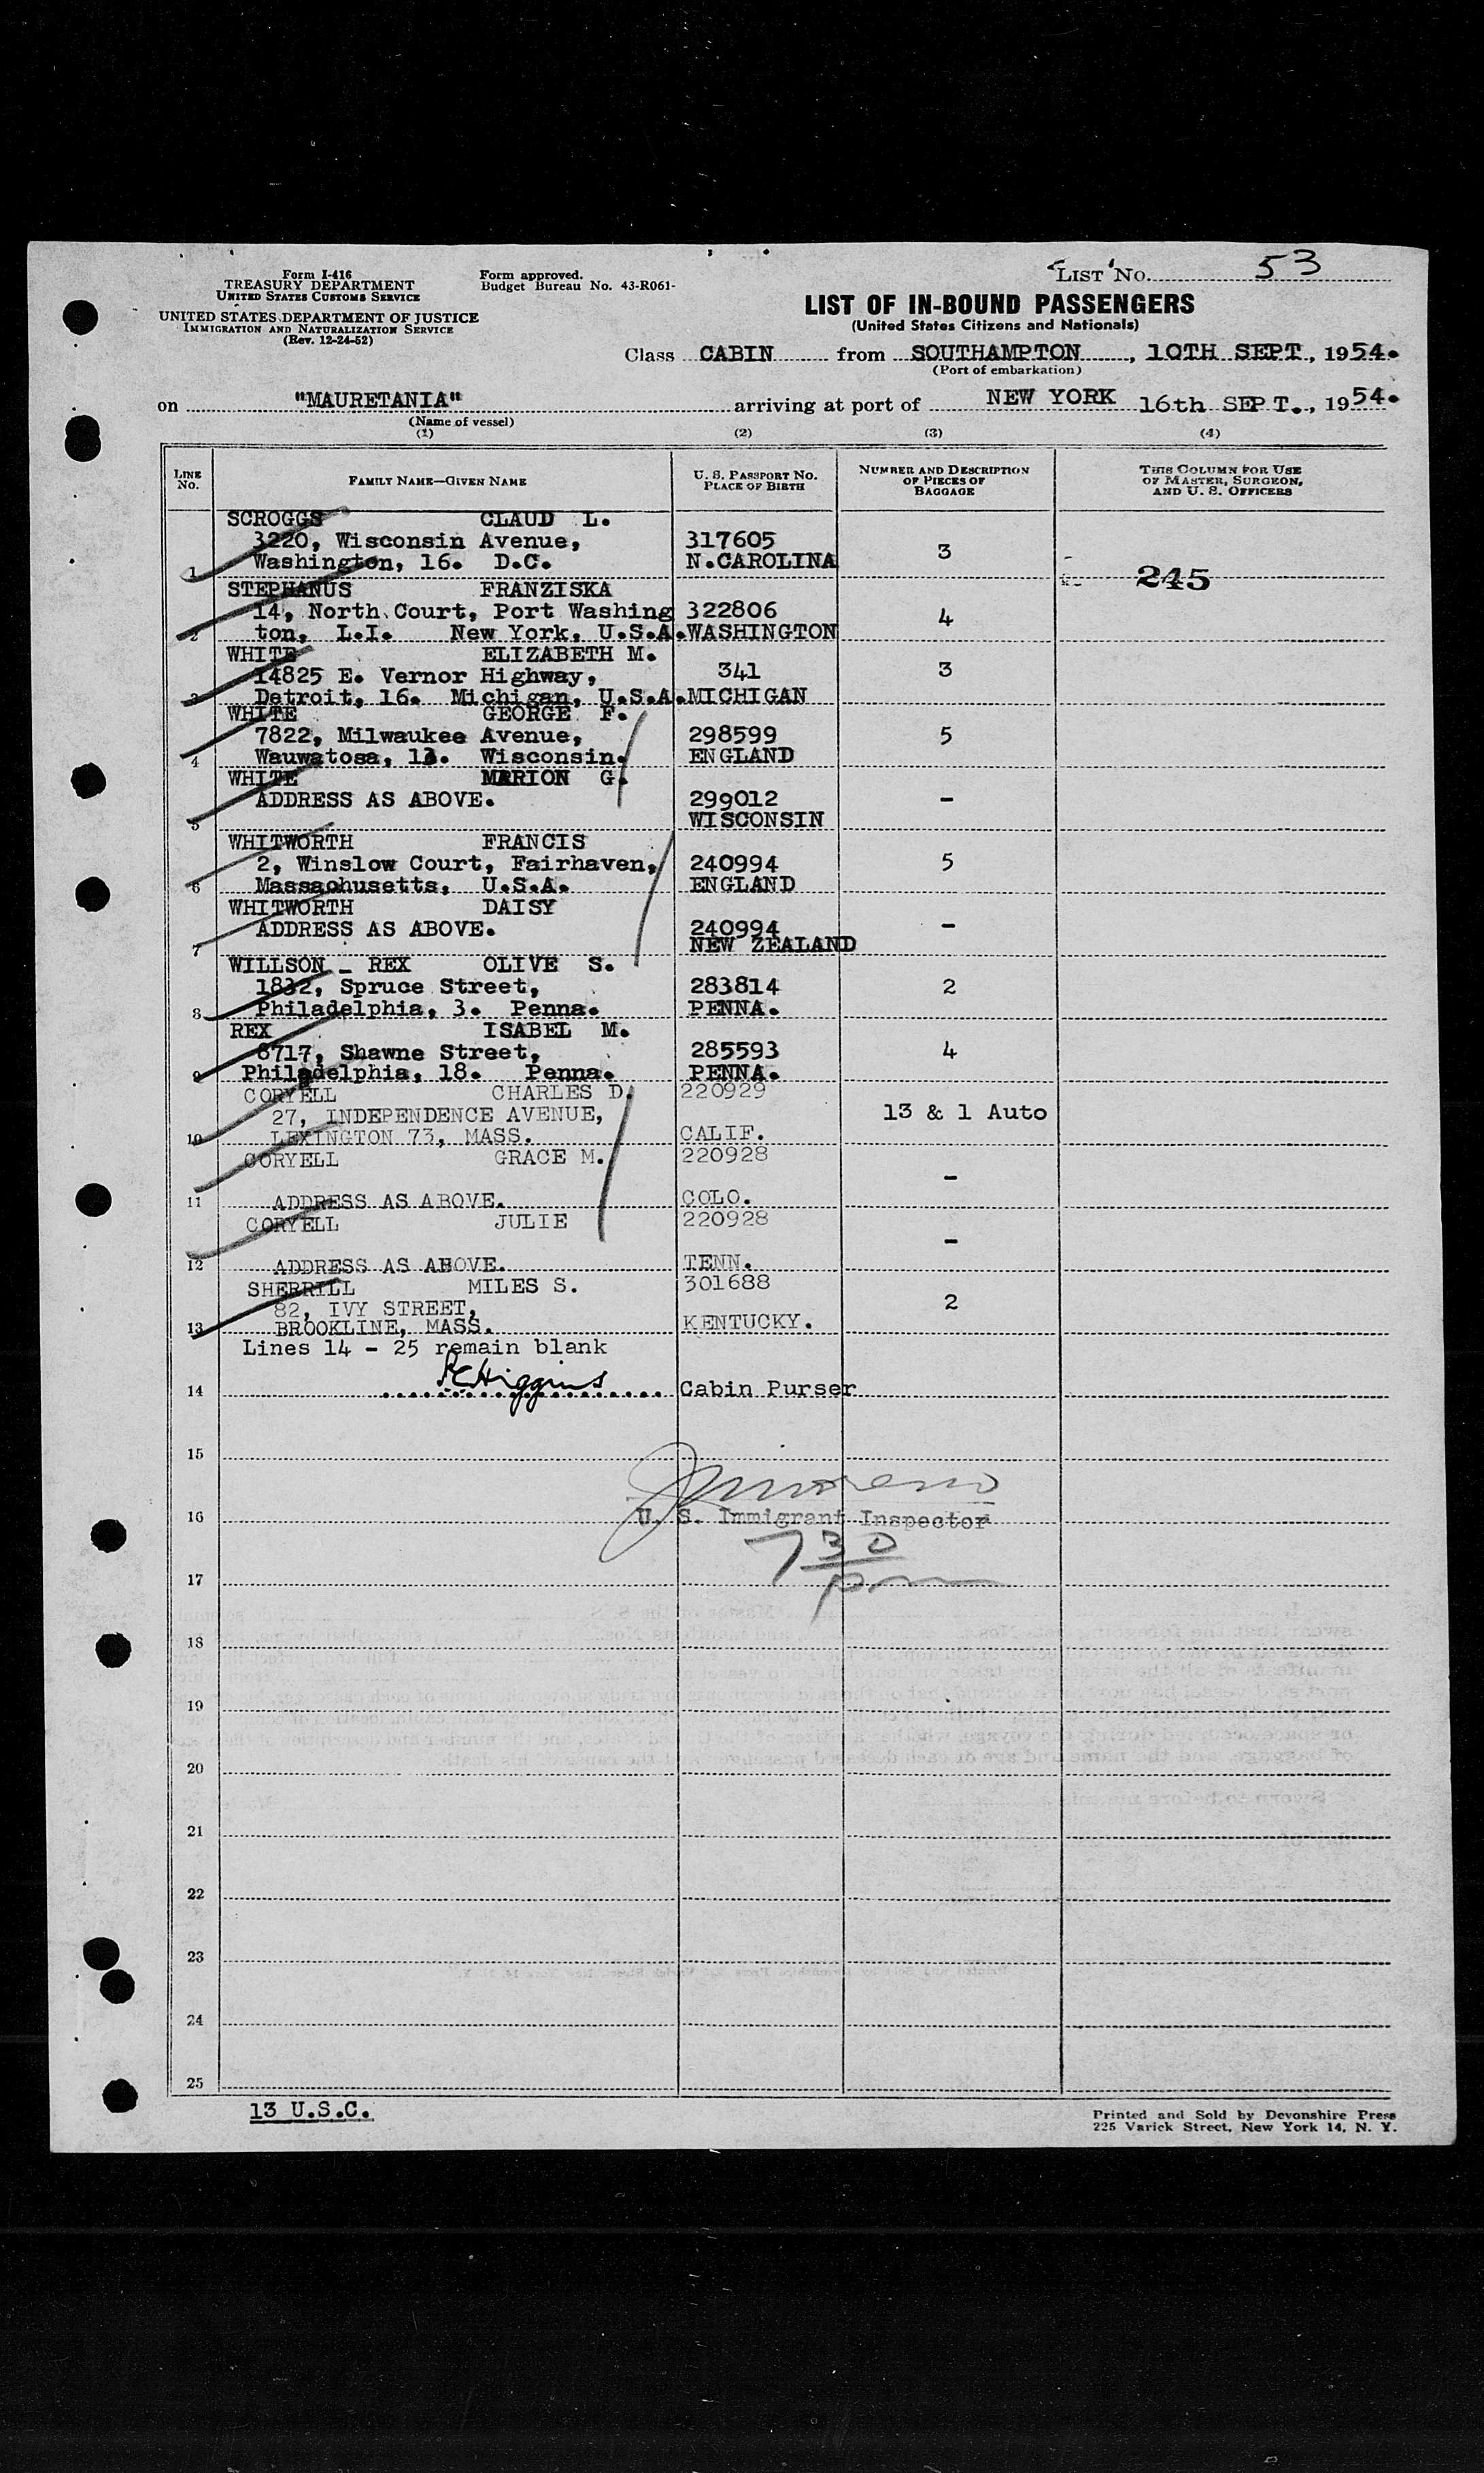 Form I-416
TREASURY DEPARTMENT
UNITED STATES CUSTOMS SERVICE
UNITED STATES DEPARTMENT OF JUSTICE
IMMIGRATION AND NATURALIZATION SERVICE
(Rev. 12-24-52)
Form approved.
Budget Bureau No. 43-R061-
LIST No. 53
LIST OF IN-BOUND PASSENGERS
(United States Citizens and Nationals)
Class CABIN from SOUTHAMPTON, 10TH SEPT, 1954.
(Port of embarkation)
on "MAURETANIA" arriving at port of NEW YORK 16th SEPT., 1954.
(Name of vessel)
(1) (2) (3) (4)
LINE No. FAMILY NAME—GIVEN NAME U. S. PASSPORT No. PLACE OF BIRTH NUMBER AND DESCRIPTION OF PIECES OF BAGGAGE THIS COLUMN FOR USE OF MASTER, SURGEON, AND U. S. OFFICERS
SCROGGS CLAUD L.
3220, Wisconsin Avenue, 317605 3
1 Washington, 16. D.C. N.CAROLINA 245
STEPHANUS FRANZISKA
14, North Court, Port Washing 322806 4
2 ton, L.I. New York, U.S.A. WASHINGTON
WHITE ELIZABETH M.
14825 E. Vernor Highway, 341 3
3 Detroit, 16. Michigan, U.S.A. MICHIGAN
WHITE GEORGE F.
7822, Milwaukee Avenue, 298599 5
4 Wauwatosa, 13. Wisconsin. ENGLAND
WHITE MARION G.
ADDRESS AS ABOVE. 299012 -
5 WISCONSIN
WHITWORTH FRANCIS
2, Winslow Court, Fairhaven, 240994 5
6 Massachusetts, U.S.A. ENGLAND
WHITWORTH DAISY
ADDRESS AS ABOVE. 240994 -
7 NEW ZEALAND
WILLSON - REX OLIVE S.
1832, Spruce Street, 283814 2
8 Philadelphia, 3. Penna. PENNA.
REX ISABEL M.
8717, Shawne Street, 285593 4
9 Philadelphia, 18. Penna. PENNA.
CORYELL CHARLES D. 220929
27, INDEPENDENCE AVENUE, 13 & 1 Auto
10 LEXINGTON 73, MASS. CALIF.
CORYELL GRACE M. 220928
-
11 ADDRESS AS ABOVE. COLO.
CORYELL JULIE 220928
-
12 ADDRESS AS ABOVE. TENN.
SHERRILL MILES S. 301688
82, IVY STREET, 2
13 BROOKLINE, MASS. KENTUCKY.
Lines 14 - 25 remain blank
14 R C Higgins Cabin Purser
15
16 U. S. Immigrant Inspector
7 30
17 pm
18
19
20
21
22
23
24
25
13 U.S.C.
Printed and Sold by Devonshire Press
225 Varick Street, New York 14, N. Y.